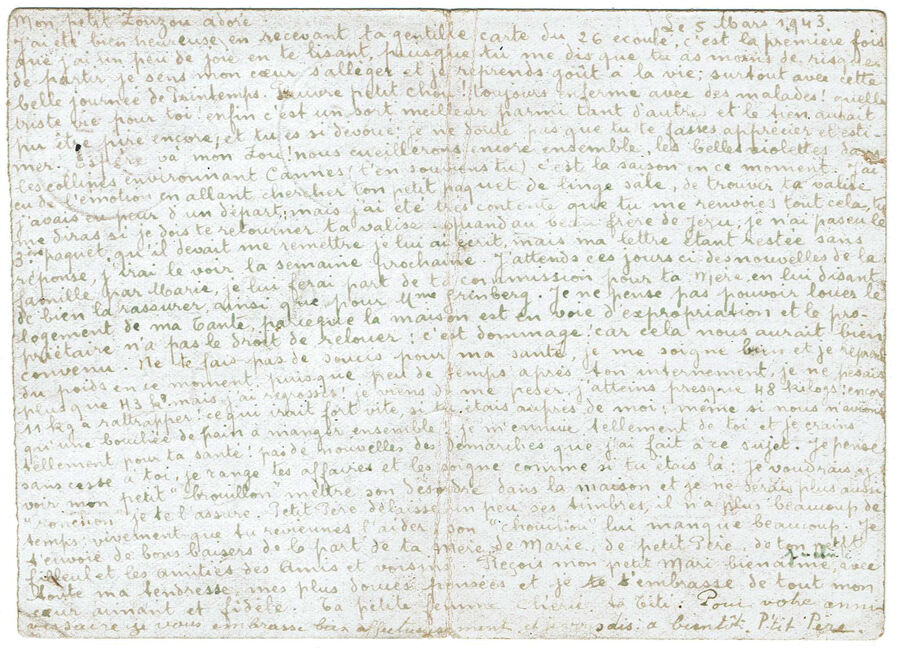 Mon petit Zouzou adoré Le 5 Mars 1943.
J'ai été bien heureuse en recevant ta gentille carte du 26 écoulé, c'est la première fois
que j'ai un peu de joie en te lisant, puisque tu me dis que tu as moins de risques
de partir je sens mon cœur s'alléger et je reprends goût à la vie; surtout avec cette
belle journée de Printemps. Pauvre petit chou! toujours enfermé avec des malades! quelle
triste vie pour toi! enfin c'est un sort meilleur parmi tant d'autres et le tien aurait
pu être pire encore; et tu es si dévoué: je ne doute pas que tu te fasses apprécier et esti-
mer. Espère va mon Zou! nous cueillerons encore ensemble, les belles violettes dans
les collines environnant Cannes (t'en souviens tu) c'est la saison en ce moment. J'ai
eu de l'émotion en allant chercher ton petit paquet de linge sale, de trouver ta valise
j'avais eu peur d'un départ; mais j'ai été très contente que tu me renvoies tout cela, tu
me diras si je dois te retourner ta valise. quand au beau frère de je n'ai pas eu le
3ème paquet, qu'il devait me remettre je lui ai écrit, mais ma lettre étant restée sans
réponse, j'irai le voir la semaine prochaine. J'attends ces jours ci des nouvelles de la
famille, par Marie, je lui ferai part de ta commission pour ta Mère en lui disant
de bien la rassurer ainsi que pour Mme Grinberg. Je ne pense pas pouvoir louer le
logement de ma Tante, parceque la maison est en voie d'expropriation et le pro-
priétaire n'a pas le droit de relouer: c'est dommage! car cela nous aurait bien
convenu. Ne te fais pas de soucis pour ma santé, je me soigne bien et je reprends
du poids en ce moment, puisque peu de temps après ton internement, je ne pesais
plus que 43 kgs mais j'ai regrossi, je viens de me peser, j'atteins presque 48 kilogs! encore
11 kg à rattrapper! ce qui irait fort vite, si tu étais auprès de moi, même si nous n'avions
qu'une bouchée de pain à manger ensemble, je m'ennuie tellement de toi et je crains
tellement pour ta santé! pas de nouvelles des démarches que j'ai fait à ce sujet. Je pense
sans cesse à toi, je range tes affaires et les soigne comme si tu étais là: je voudrais y
voir mon petit "brouillon" mettre son désordre dans la maison et je ne serais plus aussi
"ronchon" je te l'assure. Petit Père délaisse un peu ses timbres, il n'a plus beaucoup de
temps: vivement que tu reviennes l'aider, son "chouchou" lui manque beaucoup. Je
t'envoie de bons baisers de la part de ta Mère, de Marie, de petit Père, de ton petit
filleul et les amitiés des Amis et voisins. Reçois mon petit Mari bienaimé, avec
toute ma tendresse, mes plus douces pensées et je t'embrasse de tout mon
cœur aimant et fidèle. Ta petite femme Chérie ta Titi. Pour votre anni
versaire je vous embrasse bien affectueusement et à bientôt. P'tit Père.